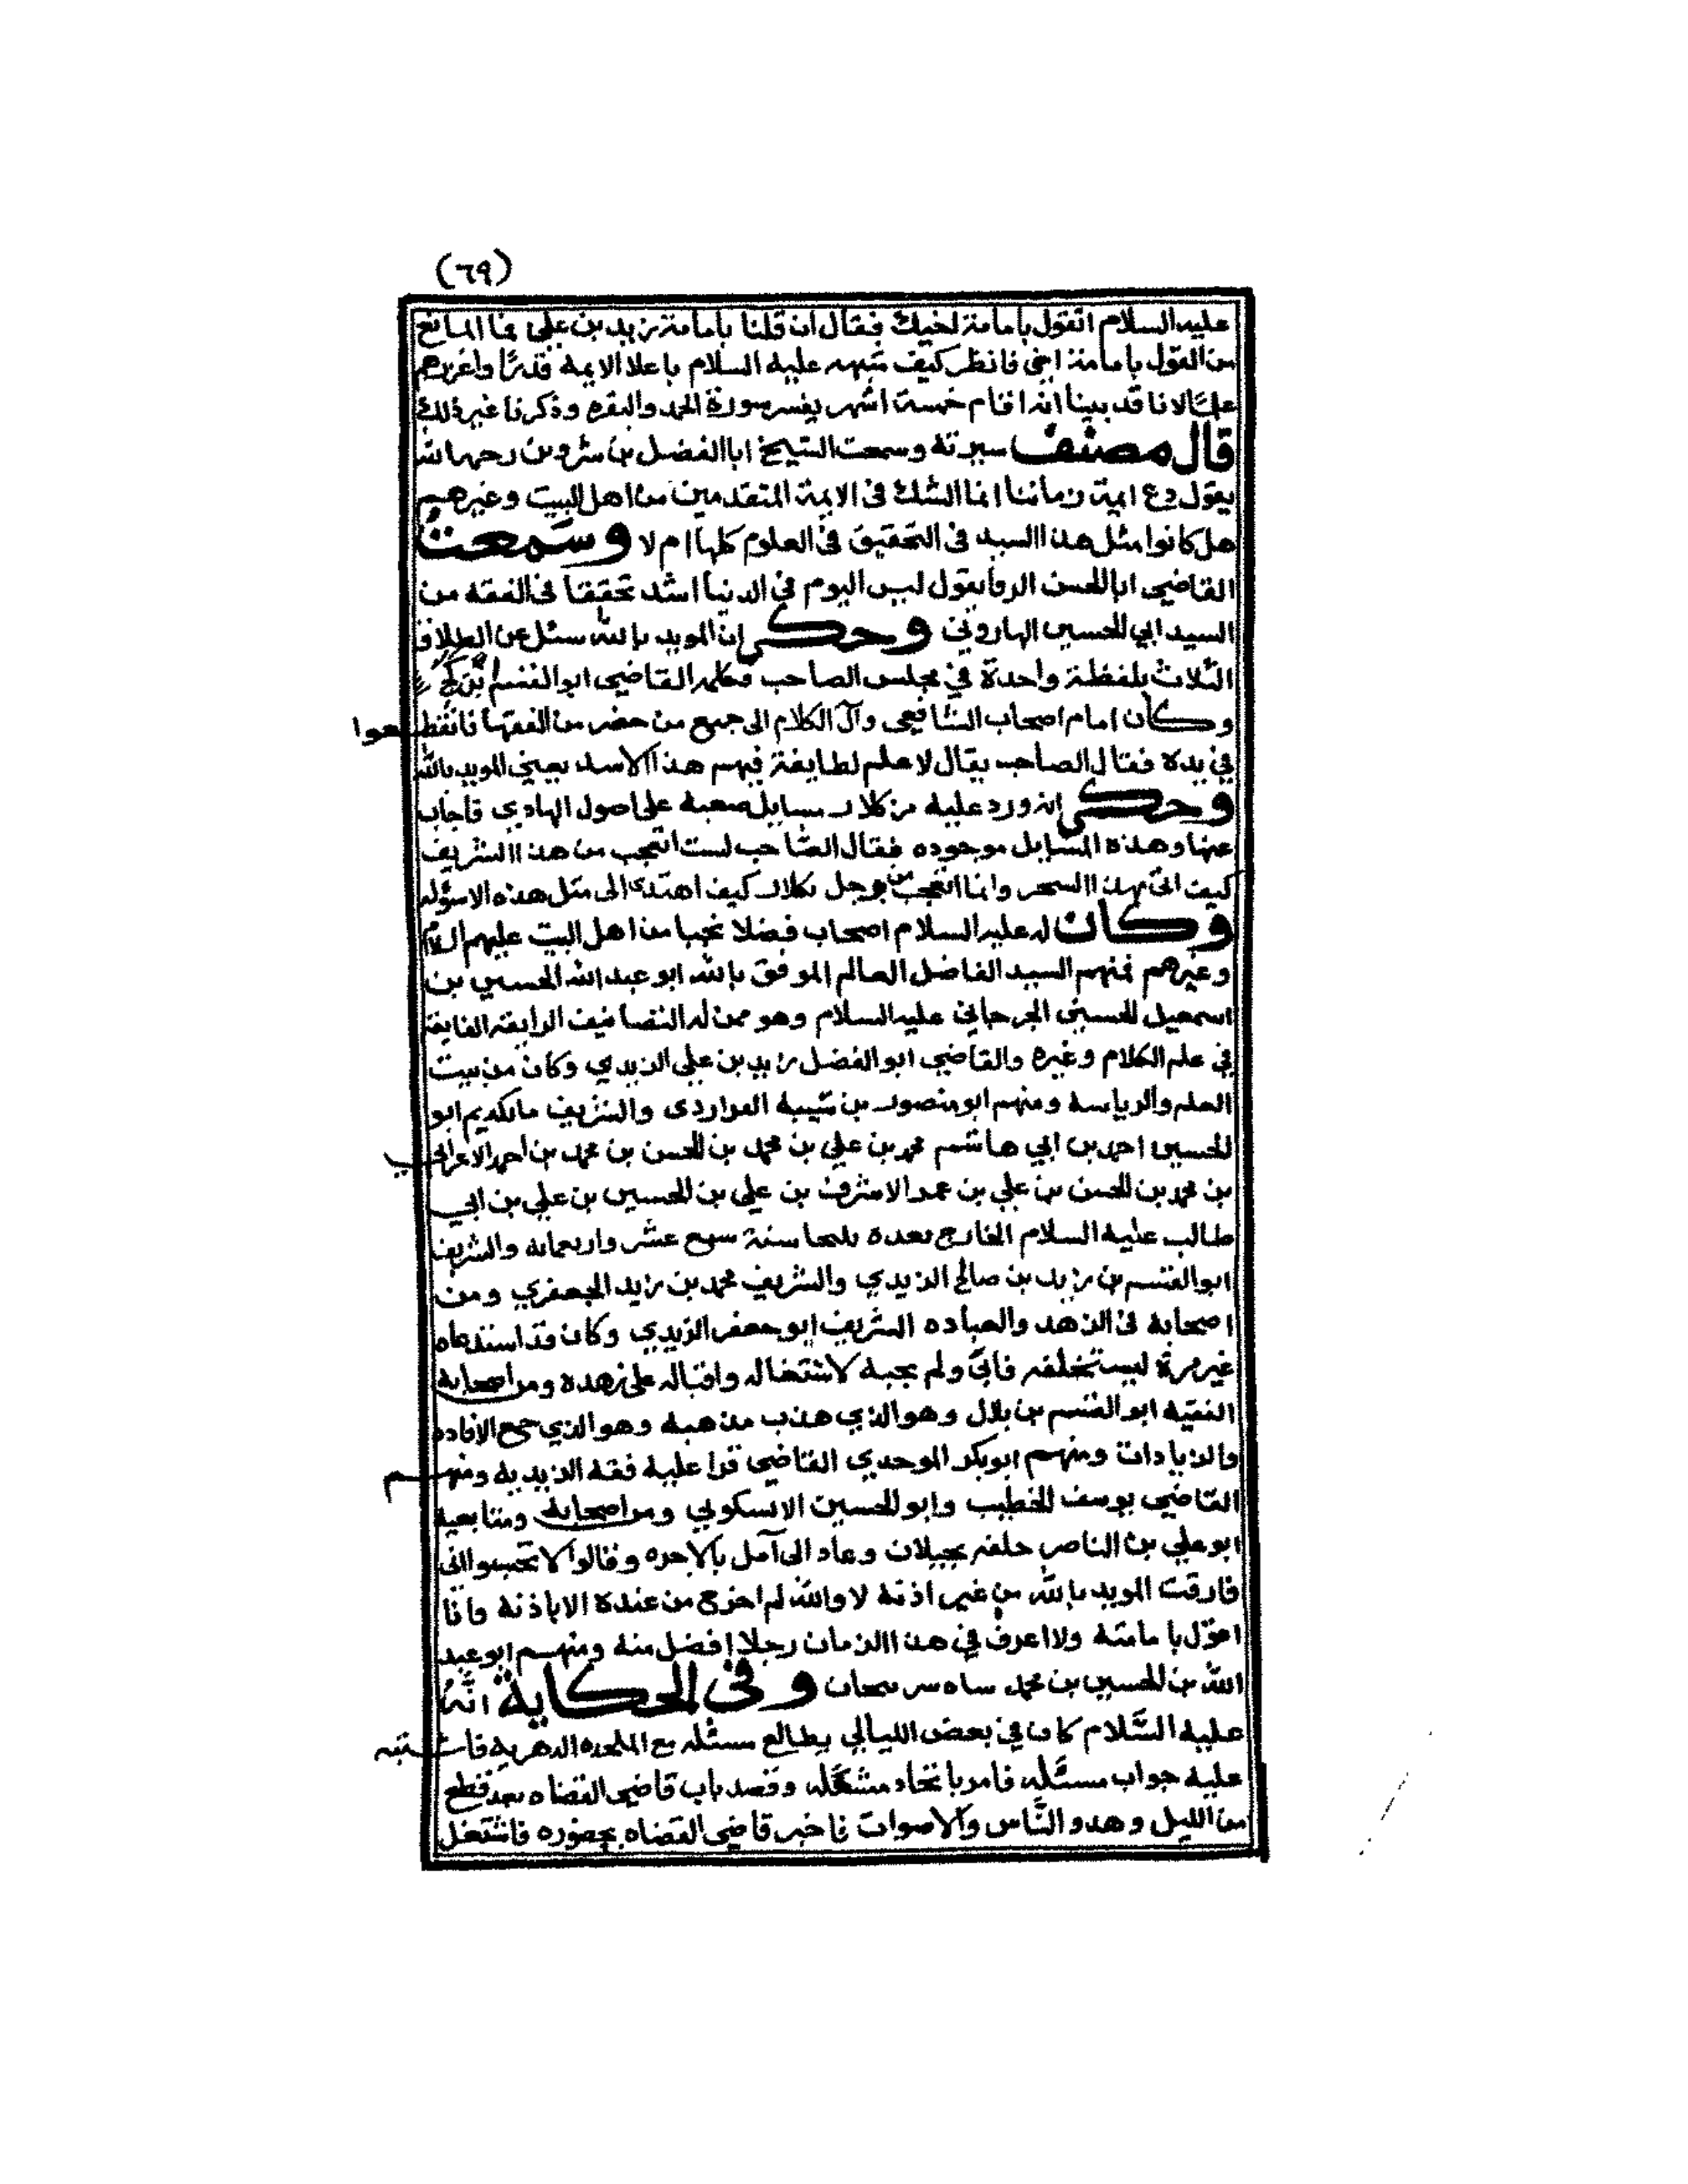 (٦٩)
عليه السلام اتقول بامامة اخيك فقال ان قلنا بامامة زيد بن على فما المانع
من القول بامامة اخى فانظر كيف شبهه عليه السلام باعلا الايمه قدرًا واغزرهم
علمًا لانا قد بينا انه اقام خمسة اشهر يفسر سورة الحمد والبقره وذكرنا غير ذلك
قال مصنف سيرته وسمعت الشيخ ابا الفضل بن شروين رحمه الله
يقول دع ايمة زماننا انما الشك فى الايمة المتقدمين من اهل البيت وغيرهم
هل كانوا مثل هذا السيد فى التحقيق فى العلوم كلها ام لا وسمعت
القاضي ابا الحسن الرفا يقول ليس اليوم في الدنيا اشد تحقيقا فى الفقه من
السيد ابي الحسين الهاروني وحكى ان المويد بالله سئل عن الطلاق
الثلاث بلفظة واحدة في مجلس الصاحب وكلمه القاضي ابو القسم بن كج
وكان امام اصحاب الشافعي وآل الكلام الى جميع من حضر من الفقها فانقطعوا
في يده فقال الصاحب يقال لا علم لطايفة فيهم هذا الاسد يعني المويد بالله
وحكى انه ورد عليه من كلار مسايل صعبة على اصول الهادي فاجاب
عنها وهذه المسايل موجوده فقال الصاحب لست اتعجب من هذا الشريف
كيف اتى بهذا السحر وانما اتعجب من رجل بكلار كيف اهتدى الى مثل هذه الاسؤله
وكان له عليه السلام اصحاب فضلا نجبا من اهل البيت عليهم السلام
وغيرهم فمنهم السيد الفاضل العالم الموفق بالله ابو عبد الله الحسين بن
اسمعيل الحسيني الجرجاني عليه السلام وهو ممن له التصانيف الرايقة الفايقة
في علم الكلام وغيره والقاضي ابو الفضل زيد بن علي الزيدي وكان من بيت
العلم والرياسة ومنهم ابو منصور بن شيبة الفرازدى والشريف مانكديم ابو
الحسين احمد بن ابي هاشم محمد بن علي بن محمد بن الحسن بن محمد بن احمد الاعرابي
بن محمد بن الحسن بن علي بن عمر الاشرف بن علي بن الحسين بن علي بن ابي
طالب عليه السلام الخارج بعده سنة سبع عشر واربعمايه والشريف
ابو القسم بن زيد بن صالح الزيدي والشريف محمد بن زيد الجعفري ومن
اصحابه فى الزهد والعباده الشريف ابو جعفر الزيدي وكان قد استدعاه
غير مرة ليستخلفه فابى ولم يجبه لاشتغاله واقباله على زهده ومن اصحابه
الفقيه ابو القسم بن بلال وهو الذي هذب مذهبه وهو الذي جمع الافاده
والزيادات ومنهم ابو بكر الموحدي القاضي قرا عليه فقه الزيدية ومنهم
القاضي يوسف الخطيب وابو الحسين الابسكوني ومن اصحابه ومتابعيه
ابو علي بن الناصر خلفه بجيلان وعاد الى آمل بالاجره وقالوا لا تحسبوا انى
فارقت المويد بالله من غير اذنه لا والله لم اخرج من عنده الا باذنه وانا
اقول بامامته ولا اعرف في هذا الزمان رجلا افضل منه ومنهم ابو عبد
الله بن الحسين بن محمد وفى الحكاية انه
عليه السَّلام كان في بعض الليالي يطالع مسئله مع الملحده الدهرية فاشتبه
عليه جواب مسئله فامر باتخاد مشعله وقصد باب قاضي القضاه بعد قطع
من الليل وهدو النَّاس والاصوات فاخبر قاضي القضاه بحضوره فاشتغل